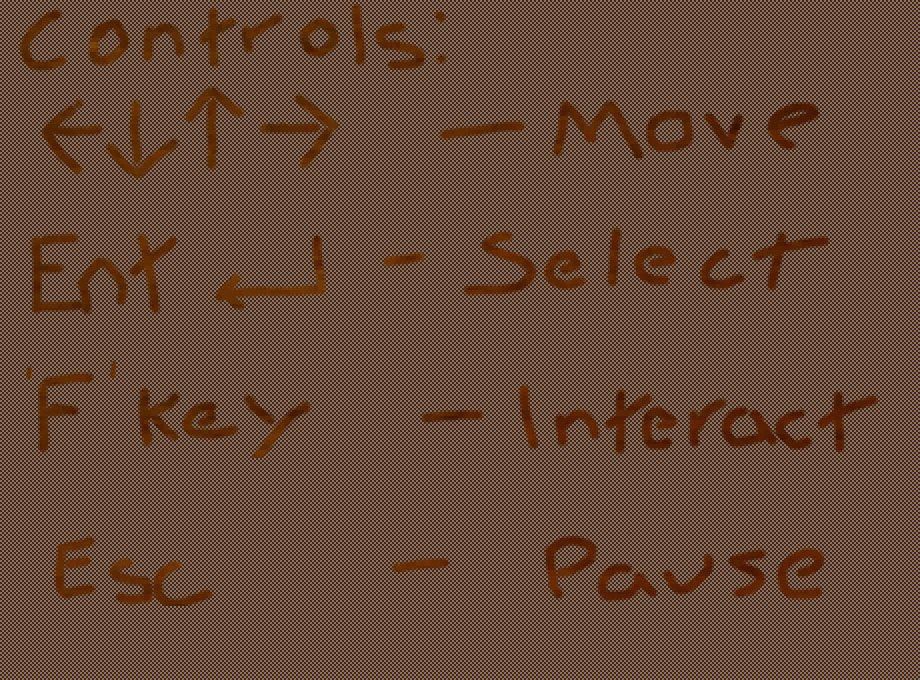 Controls:
← ↓ ↑ → - Move
Ent ↵ - Select
'F' key - Interact
Esc - Pause